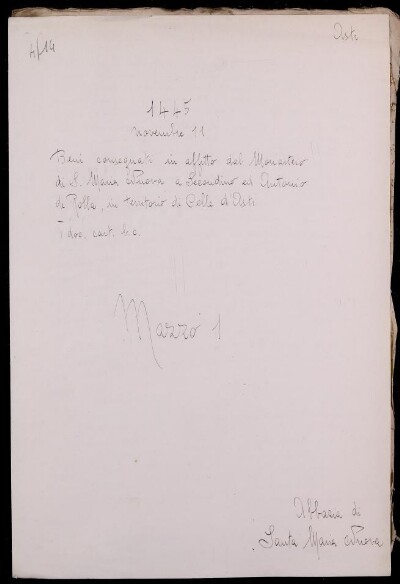 4/14
Asti
1445
novembre 11
Beni consegnati in affitto dal Monastero
di S. Maria Nuova a Secondino ed Antonio
de Rolla, in territorio di Celle d'Asti
1 doc. cart. b.c.
Mazzo 1
Abbazia di
Santa Maria Nuova